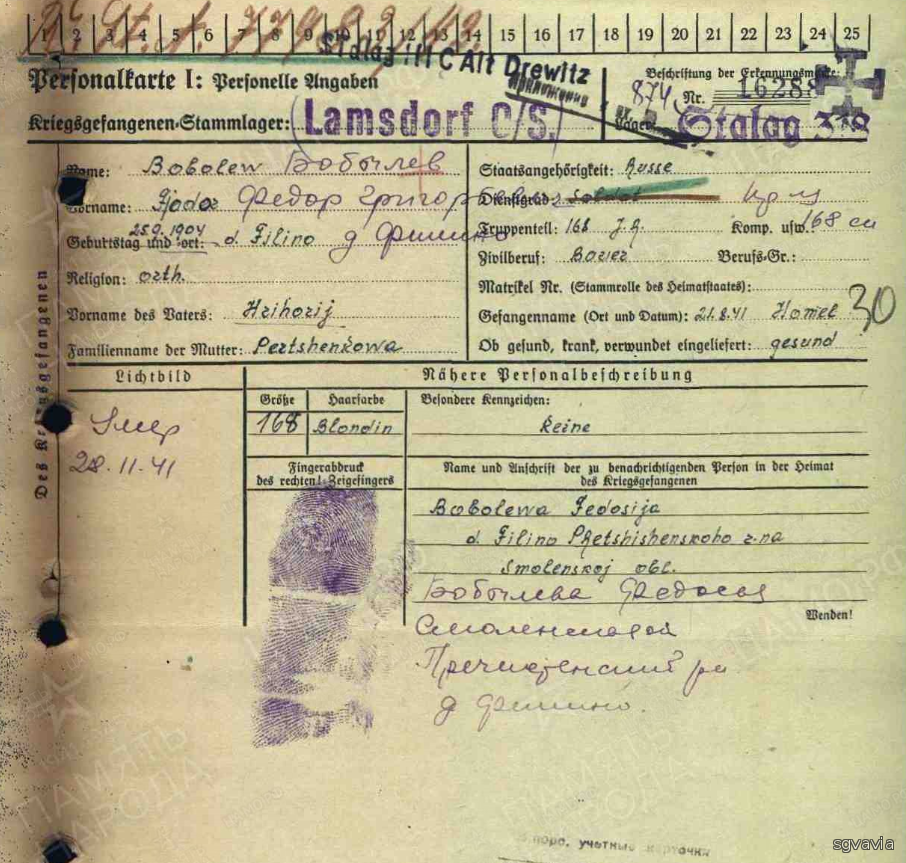 1 2 3 4 5 6 7 8 9 10 11 12 13 14 15 16 17 18 19 20 21 22 23 24 25
Stalag III C Alt Drewitz
Personalkarte I: Personelle Angaben
Beschriftung der Erkennungsmarke:
874 Nr. 16288
Kriegsgefangenen-Stammlager: Lamsdorf C/S. Lager: Stalag 318
Des Kriegsgefangenen
Name: Bobolew Бобылев
Staatsangehörigkeit: Russe
Vorname: Fjodor Федор Григор
Dienstgrad: Soldat
Geburtstag und -ort: 25.9.1904 d. Filino д Филино
Truppenteil: 168 J.R. Komp. usw. 168 сп
Zivilberuf: Berufs-Gr.:
Religion: orth.
Matrikel Nr. (Stammrolle des Heimatstaates):
Vorname des Vaters: Hrihorij
Gefangenname (Ort und Datum): 21.8.41 Homel 30
Familienname der Mutter: Pertshenkowa
Ob gesund, krank, verwundet eingeliefert: gesund
Lichtbild
Nähere Personalbeschreibung
Größe Haarfarbe Besondere Kennzeichen:
168 Blondin keine
Умер
28.11.41
Fingerabdruck
des rechten! Zeigefingers
Name und Anschrift der zu benachrichtigenden Person in der Heimat
des Kriegsgefangenen
Bobolewa Fedosija
d. Filino Pretshishenskoho r-na
Smolenskoj obl.
Бобылева Федосия
Wenden!
Смоленской
Пречистенский ра
д Филино.
учетные карточки
ПАМЯТЬ НАРОДА
sgvavia